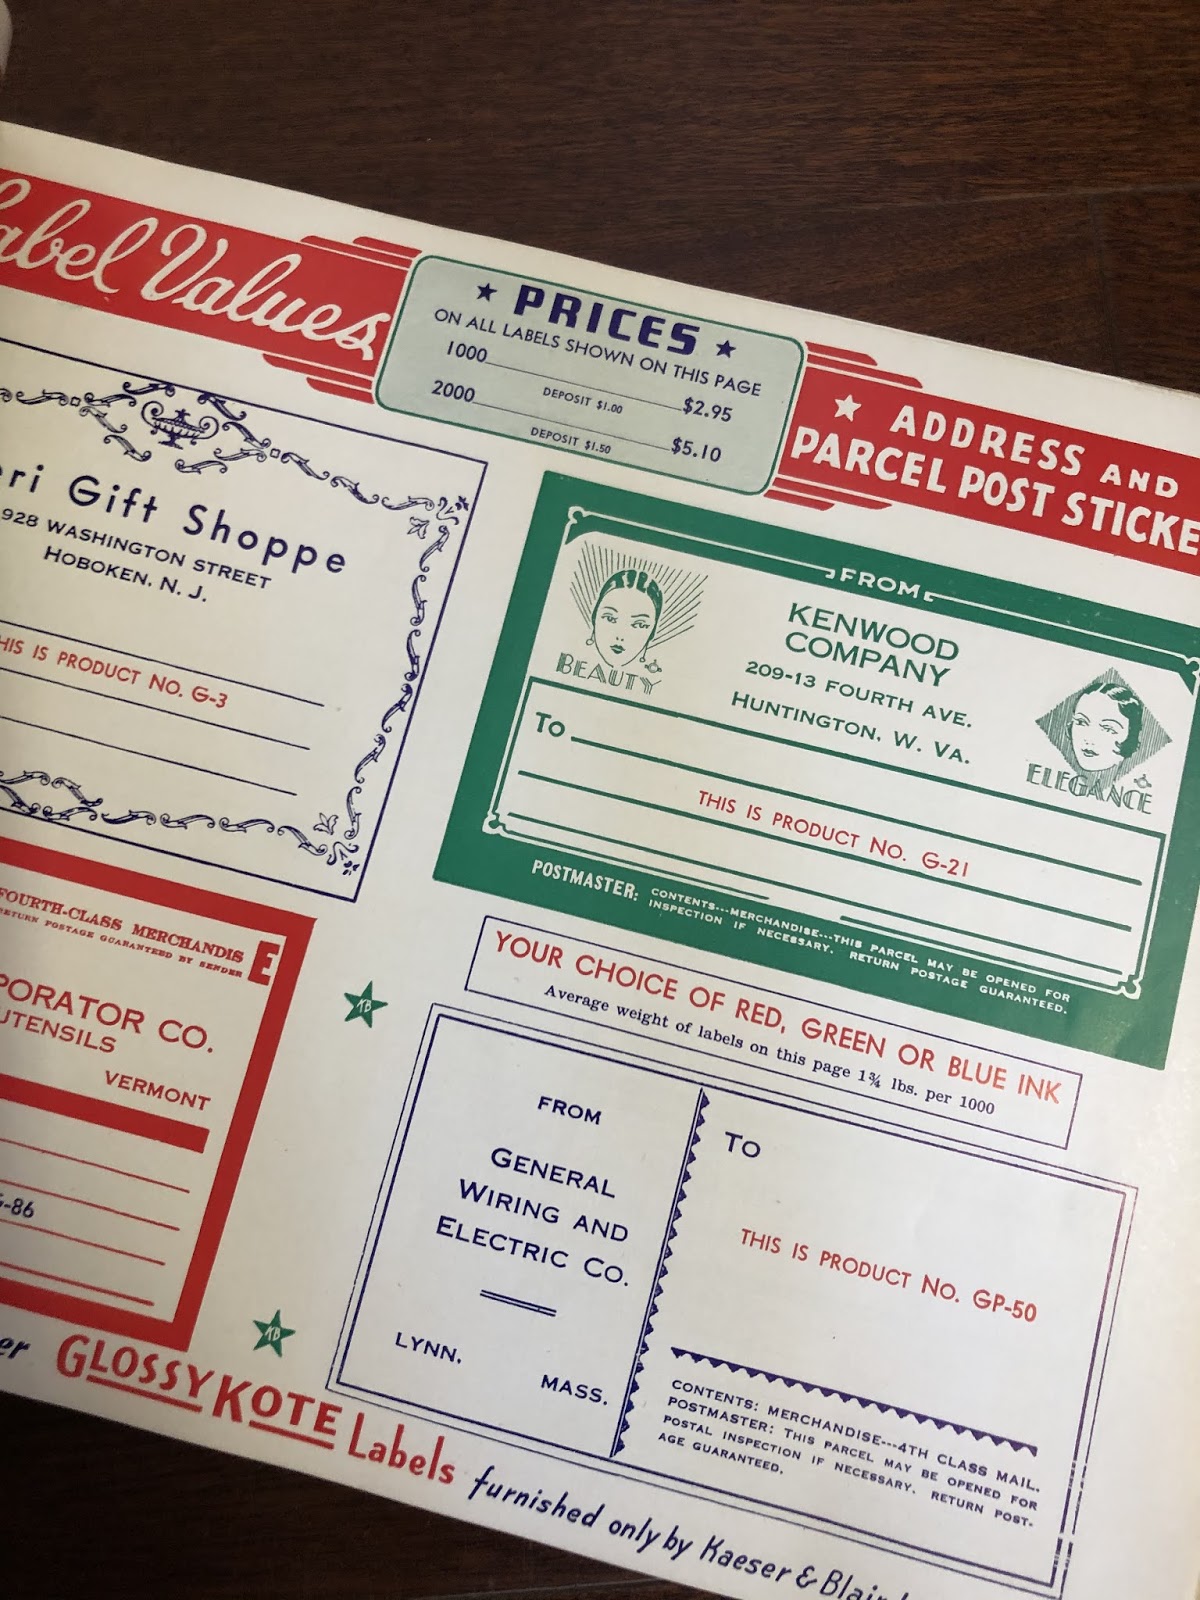 Label Values
★ PRICES ★
ON ALL LABELS SHOWN ON THIS PAGE
1000 DEPOSIT $1.00 $2.95
2000 DEPOSIT $1.50 $5.10
★ ADDRESS AND
PARCEL POST STICKE
ri Gift Shoppe
928 WASHINGTON STREET
HOBOKEN, N. J.
THIS IS PRODUCT NO. G-3
FROM
KENWOOD
COMPANY
209-13 FOURTH AVE.
HUNTINGTON, W. VA.
BEAUTY
ELEGANCE
TO
THIS IS PRODUCT NO. G-21
POSTMASTER: CONTENTS---MERCHANDISE---THIS PARCEL MAY BE OPENED FOR
INSPECTION IF NECESSARY. RETURN POSTAGE GUARANTEED.
FOURTH-CLASS MERCHANDISE
RETURN POSTAGE GUARANTEED BY SENDER
PORATOR CO.
UTENSILS
VERMONT
G-86
KB
YOUR CHOICE OF RED, GREEN OR BLUE INK
Average weight of labels on this page 1¾ lbs. per 1000
FROM
GENERAL
WIRING AND
ELECTRIC CO.
LYNN, MASS.
TO
THIS IS PRODUCT NO. GP-50
CONTENTS: MERCHANDISE---4TH CLASS MAIL.
POSTMASTER: THIS PARCEL MAY BE OPENED FOR
POSTAL INSPECTION IF NECESSARY. RETURN POST-
AGE GUARANTEED.
KB
er GLOSSYKOTE Labels furnished only by Kaeser & Blair